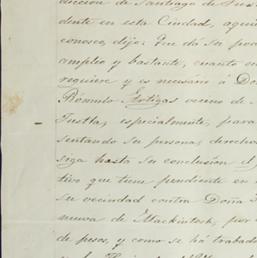 diccion de Santiago de Tux
dente en esta Ciudad, aquien
conosco, dijo: Que dá su pod
amplio y bastante, cuanto en
requiere y es necesário á Do
Romulo Artigas vecino de
Tustla, especialmente, para
sentando su persona, derechos
siga hasta su conclusion el
tivo que tiene pendiente en
su vecindad contra Doña
nueva de Mackintosh, por
de pesos, y como se há trabado